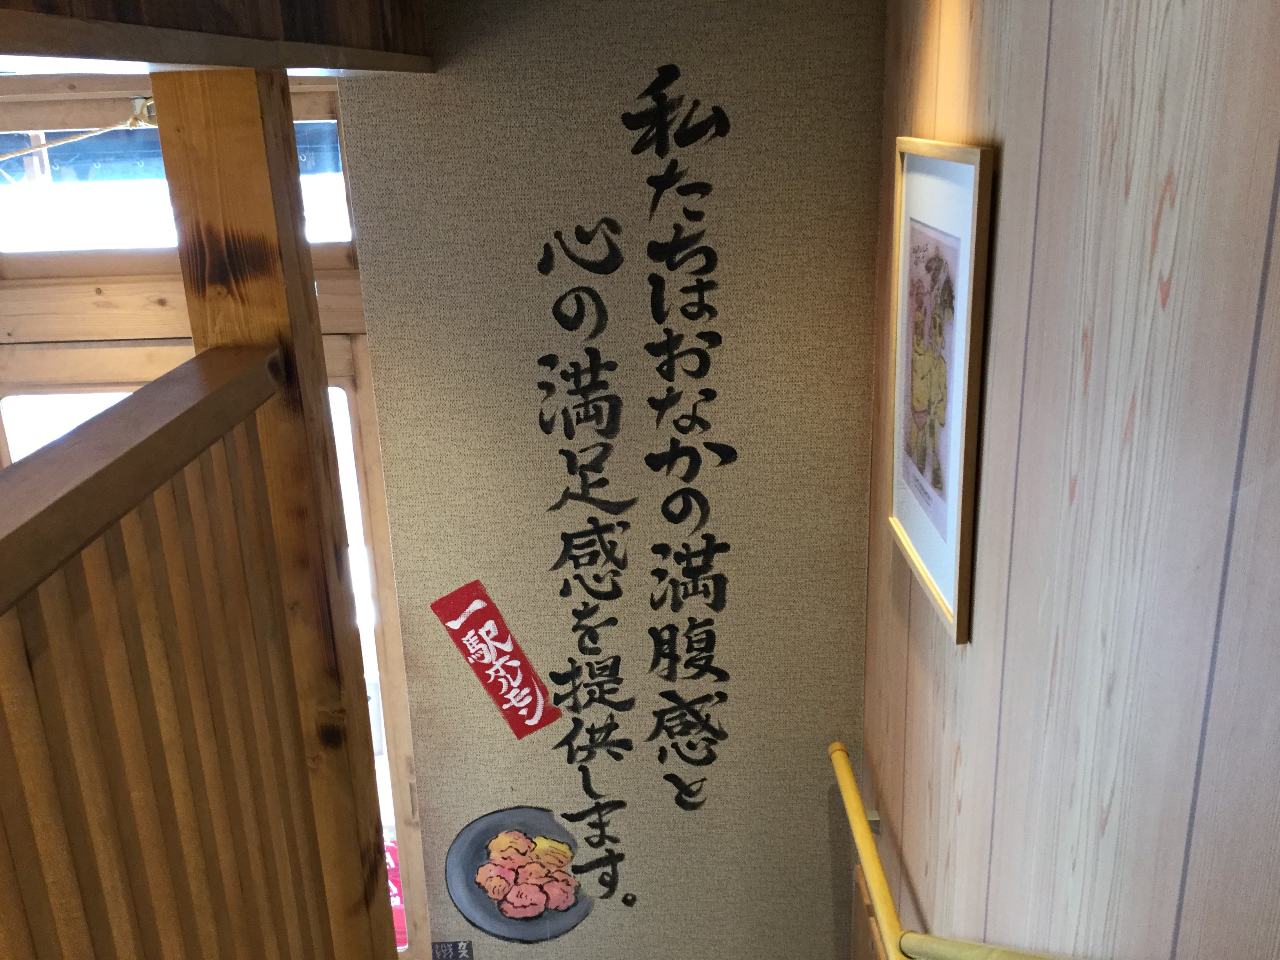 私たちはおなかの満腹感と
心の満足感を提供します。
一駅ホルモン
ガス